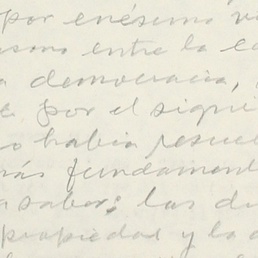 por enésima v
entre la
democracia,
por el sigui
o había resue
ás fundament
a saber: las d
propiedad y la